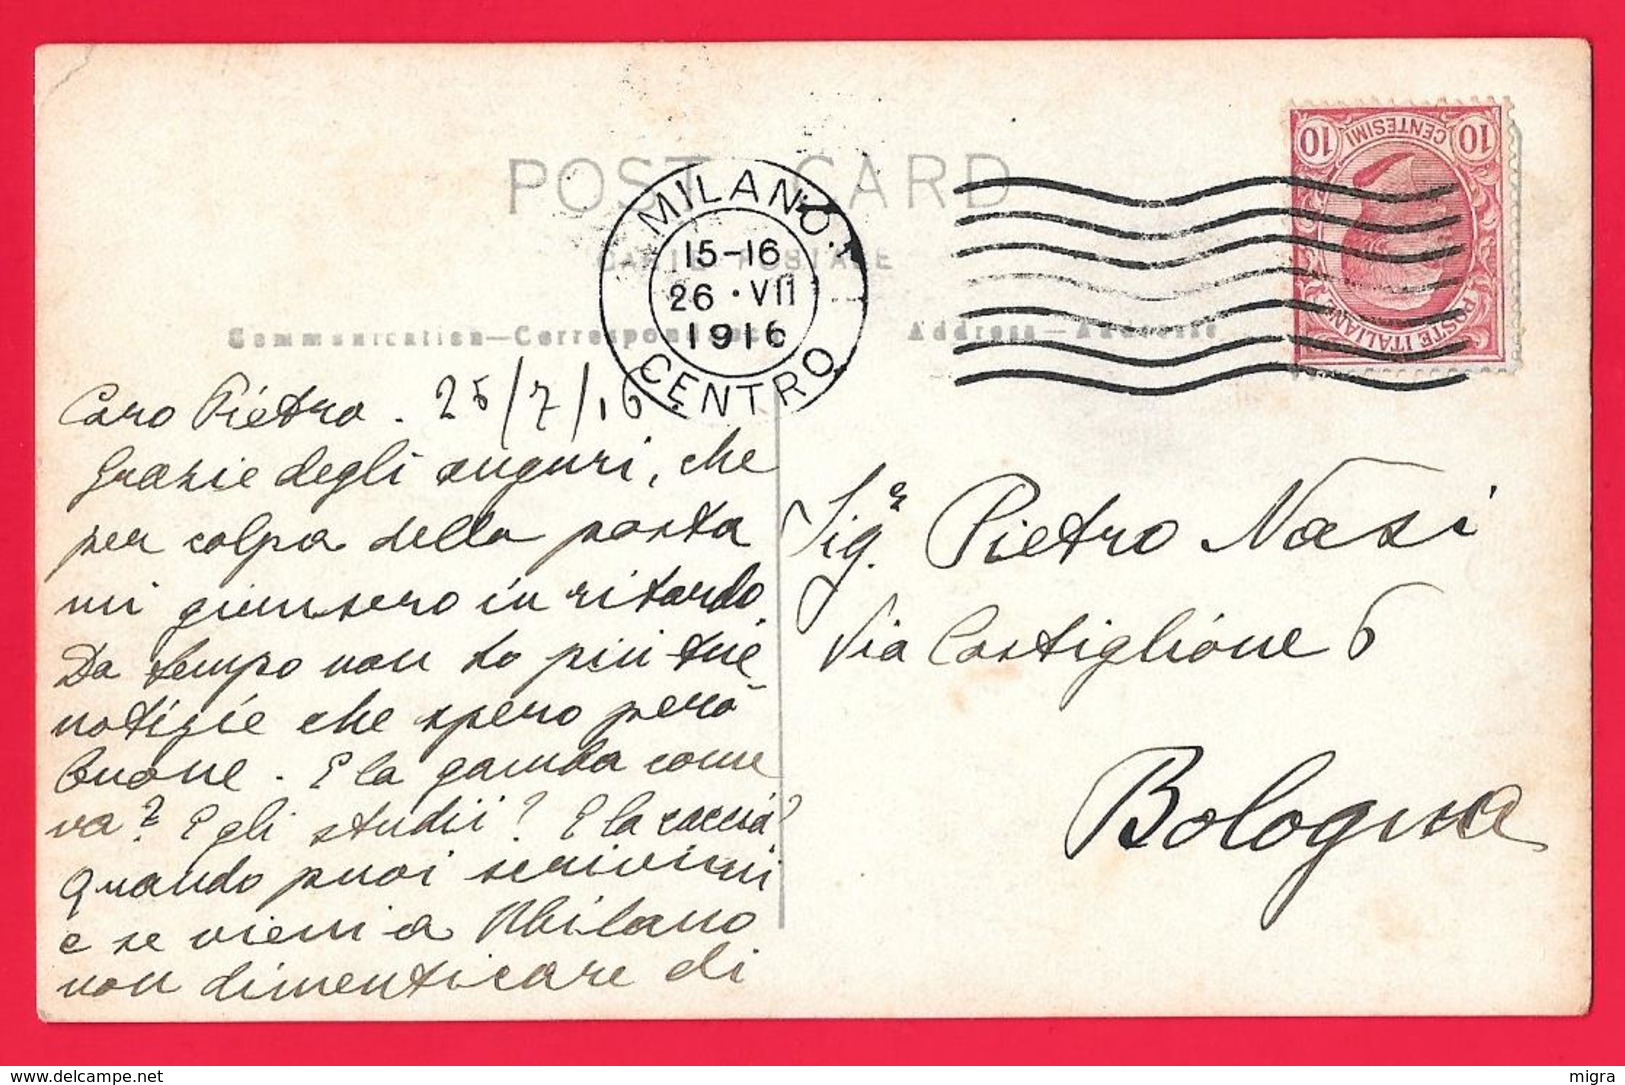 POST CARD
CARTE POSTALE
Communication—Correspondance
Address—Addresse
MILANO.
15-16
26 · VII
1916
CENTRO
10 CENTESIMI 10
POSTE ITALIANE
Caro Pietro. 25/7/16.
Grazie degli auguri, che
per colpa della posta
mi giunsero in ritardo.
Da tempo non so più tue
notizie che spero però
buone. E la gamba come
va? E gli studii? E la caccia?
Quando puoi scrivimi
e se vieni a Milano
non dimenticare di
Sigr. Pietro Nasi
Via Castiglione 6
Bologna
https://www.delcampe.net
migra